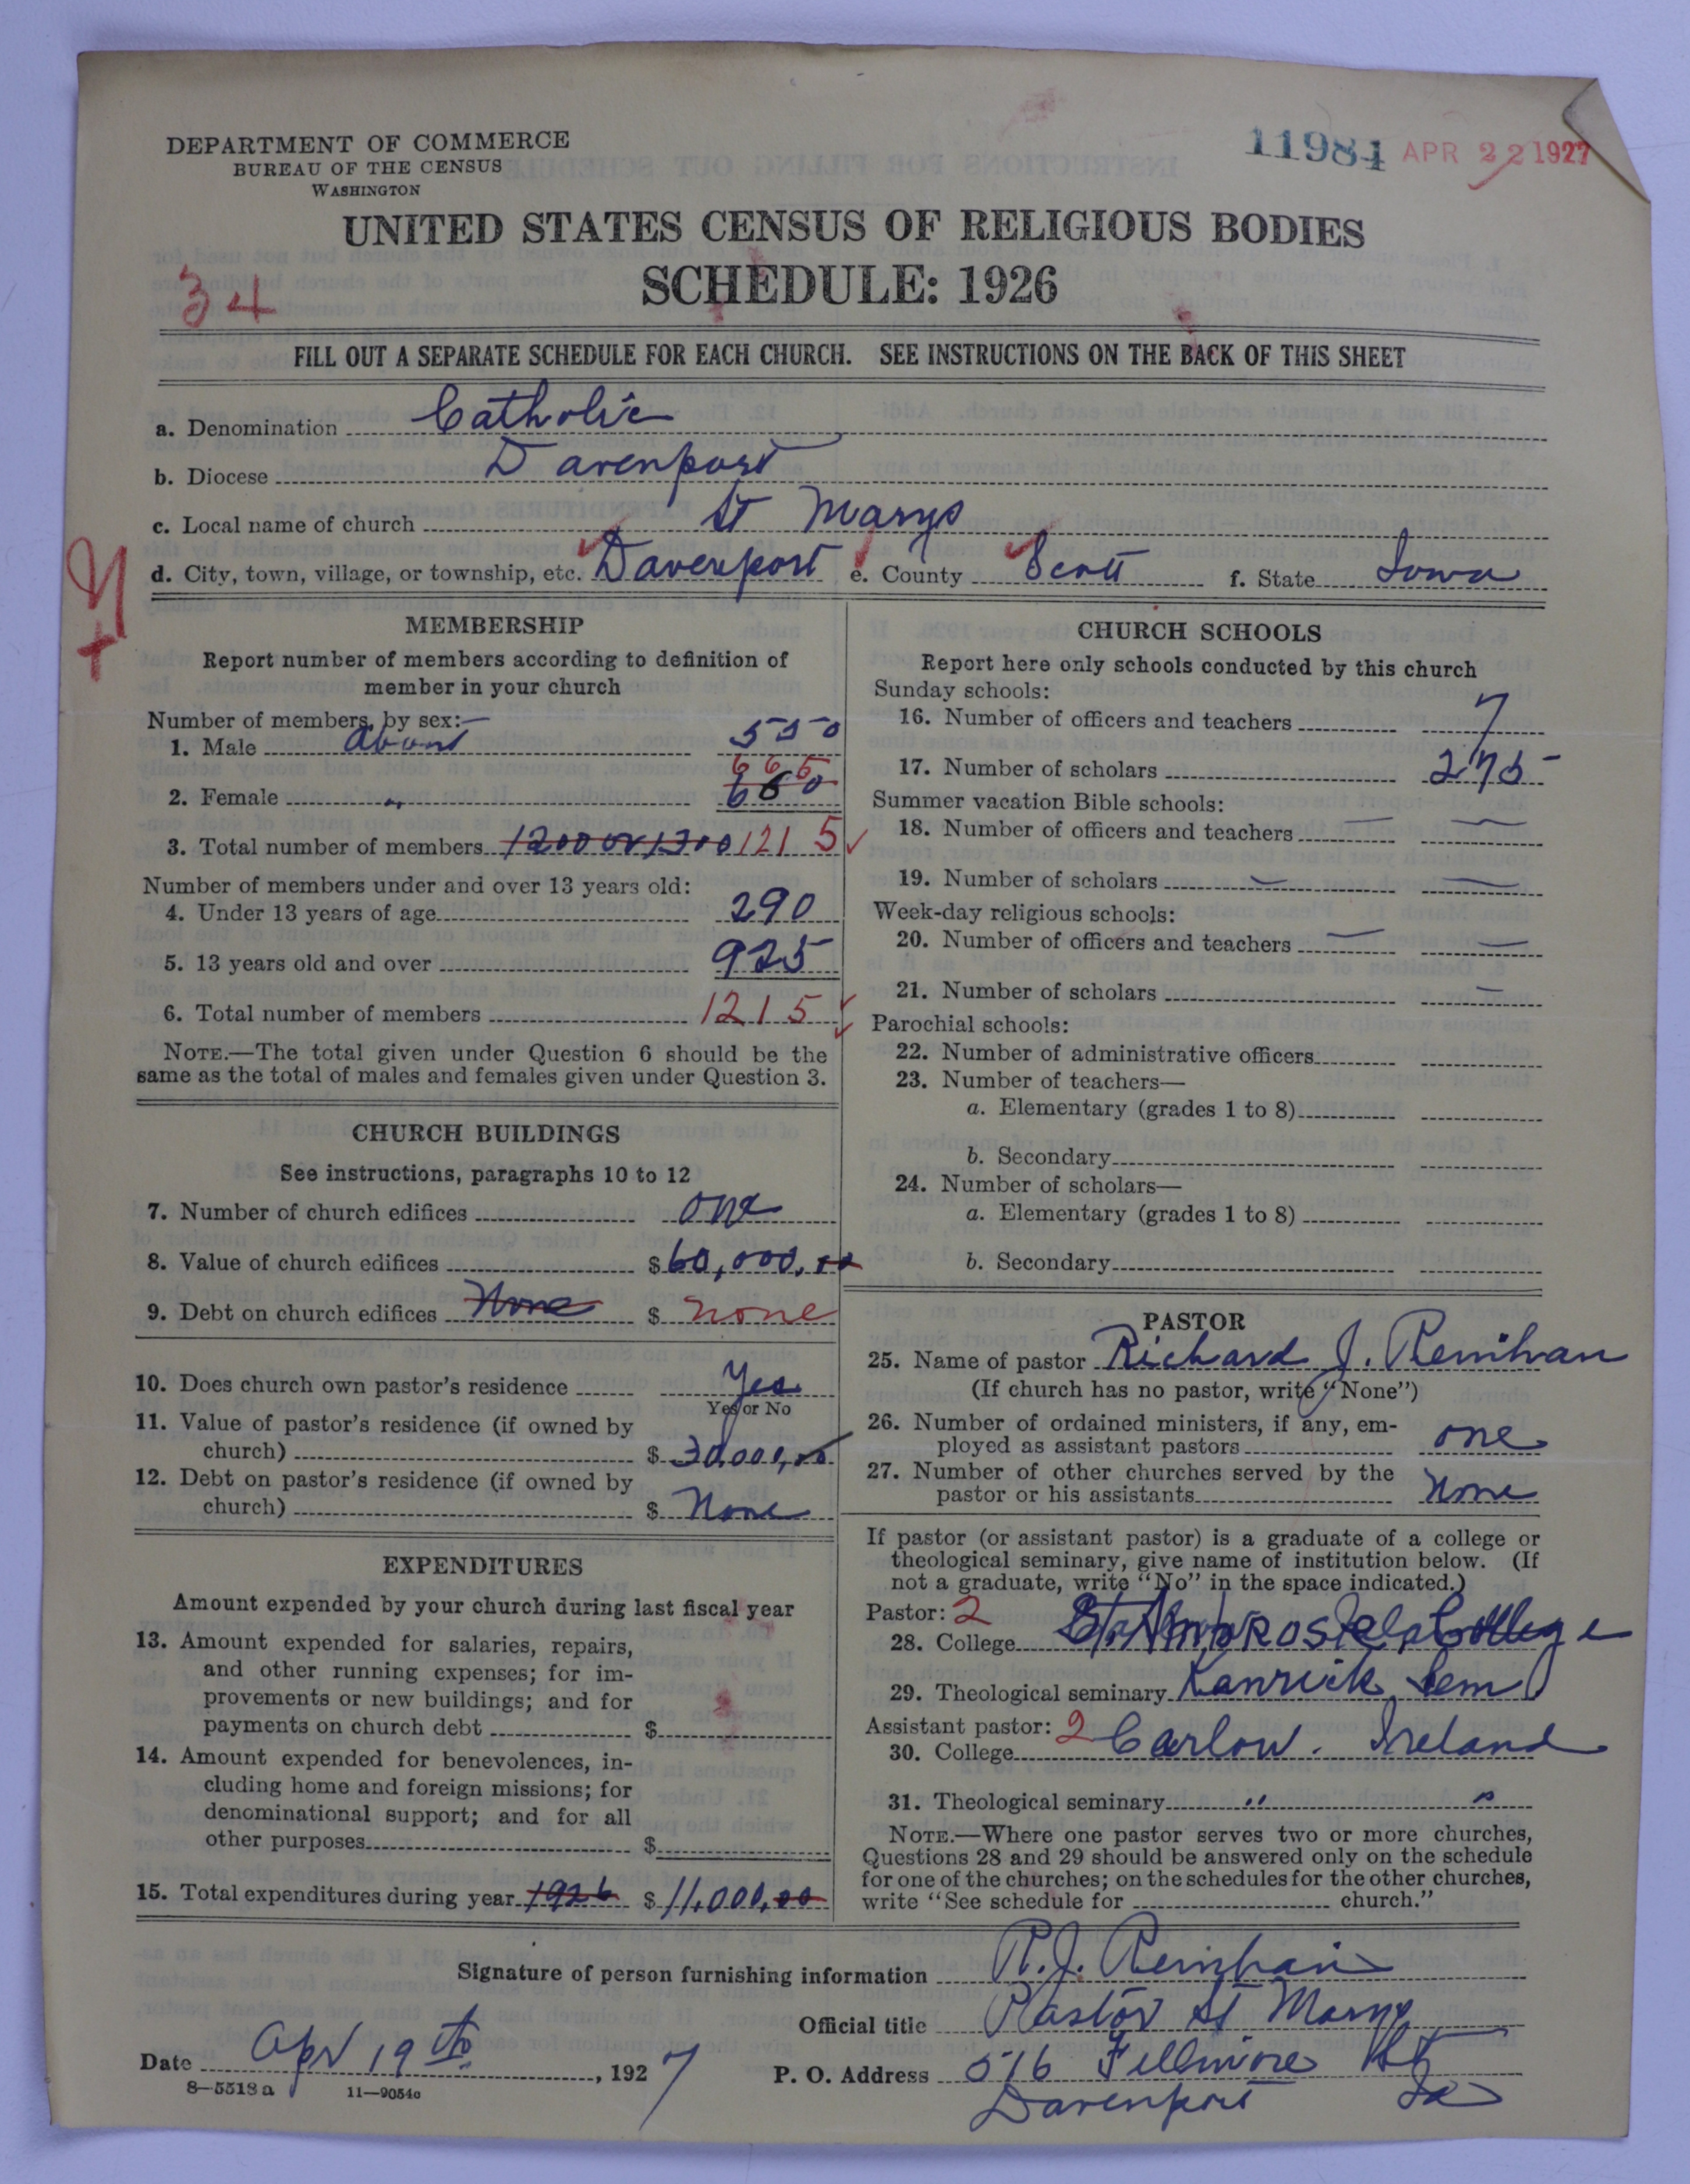 DEPARTMENT OF COMMERCE
BUREAU OF THE CENSUS
WASHINGTON
11984 APR 22 1927
UNITED STATES CENSUS OF RELIGIOUS BODIES
SCHEDULE: 1926
34
FILL OUT A SEPARATE SCHEDULE FOR EACH CHURCH. SEE INSTRUCTIONS ON THE BACK OF THIS SHEET
a. Denomination Catholic
b. Diocese Davenport
c. Local name of church St Marys
d. City, town, village, or township, etc. Davenport e. County Scott f. State Iowa
MEMBERSHIP
Report number of members according to definition of
member in your church
Number of members, by sex:—
1. Male About 550
665
2. Female " 660
3. Total number of members 1200 or 1300 1215
Number of members under and over 13 years old:
4. Under 13 years of age 290
5. 13 years old and over 925
6. Total number of members 1215
NOTE.—The total given under Question 6 should be the
same as the total of males and females given under Question 3.
CHURCH BUILDINGS
See instructions, paragraphs 10 to 12
7. Number of church edifices one
8. Value of church edifices $ 60,000.00
9. Debt on church edifices None $ none
10. Does church own pastor's residence Yes
Yes or No
11. Value of pastor's residence (if owned by
church) $ 30,000,00
12. Debt on pastor's residence (if owned by
church) $ None
EXPENDITURES
Amount expended by your church during last fiscal year
13. Amount expended for salaries, repairs,
and other running expenses; for im-
provements or new buildings; and for
payments on church debt $
14. Amount expended for benevolences, in-
cluding home and foreign missions; for
denominational support; and for all
other purposes $
15. Total expenditures during year 1926 $ 11,000,00
CHURCH SCHOOLS
Report here only schools conducted by this church
Sunday schools:
16. Number of officers and teachers 7
17. Number of scholars 275
Summer vacation Bible schools:
18. Number of officers and teachers — —
19. Number of scholars — —
Week-day religious schools:
20. Number of officers and teachers — —
21. Number of scholars —
Parochial schools:
22. Number of administrative officers
23. Number of teachers—
a. Elementary (grades 1 to 8)
b. Secondary
24. Number of scholars—
a. Elementary (grades 1 to 8)
b. Secondary
PASTOR
25. Name of pastor Richard J. Renihan
(If church has no pastor, write "None")
26. Number of ordained ministers, if any, em-
ployed as assistant pastors one
27. Number of other churches served by the
pastor or his assistants None
If pastor (or assistant pastor) is a graduate of a college or
theological seminary, give name of institution below. (If
not a graduate, write "No" in the space indicated.)
Pastor: 2
28. College St. Ambrose College
29. Theological seminary Kanrick Sem
Assistant pastor: 2
30. College Carlow. Ireland
31. Theological seminary " "
NOTE.—Where one pastor serves two or more churches,
Questions 28 and 29 should be answered only on the schedule
for one of the churches; on the schedules for the other churches,
write "See schedule for church."
Signature of person furnishing information R. J. Renihan
Official title Pastor St Marys
Date Apr 19th, 1927 P. O. Address 516 Fillmore St
Davenport Ia
8—5518a 11—9054c